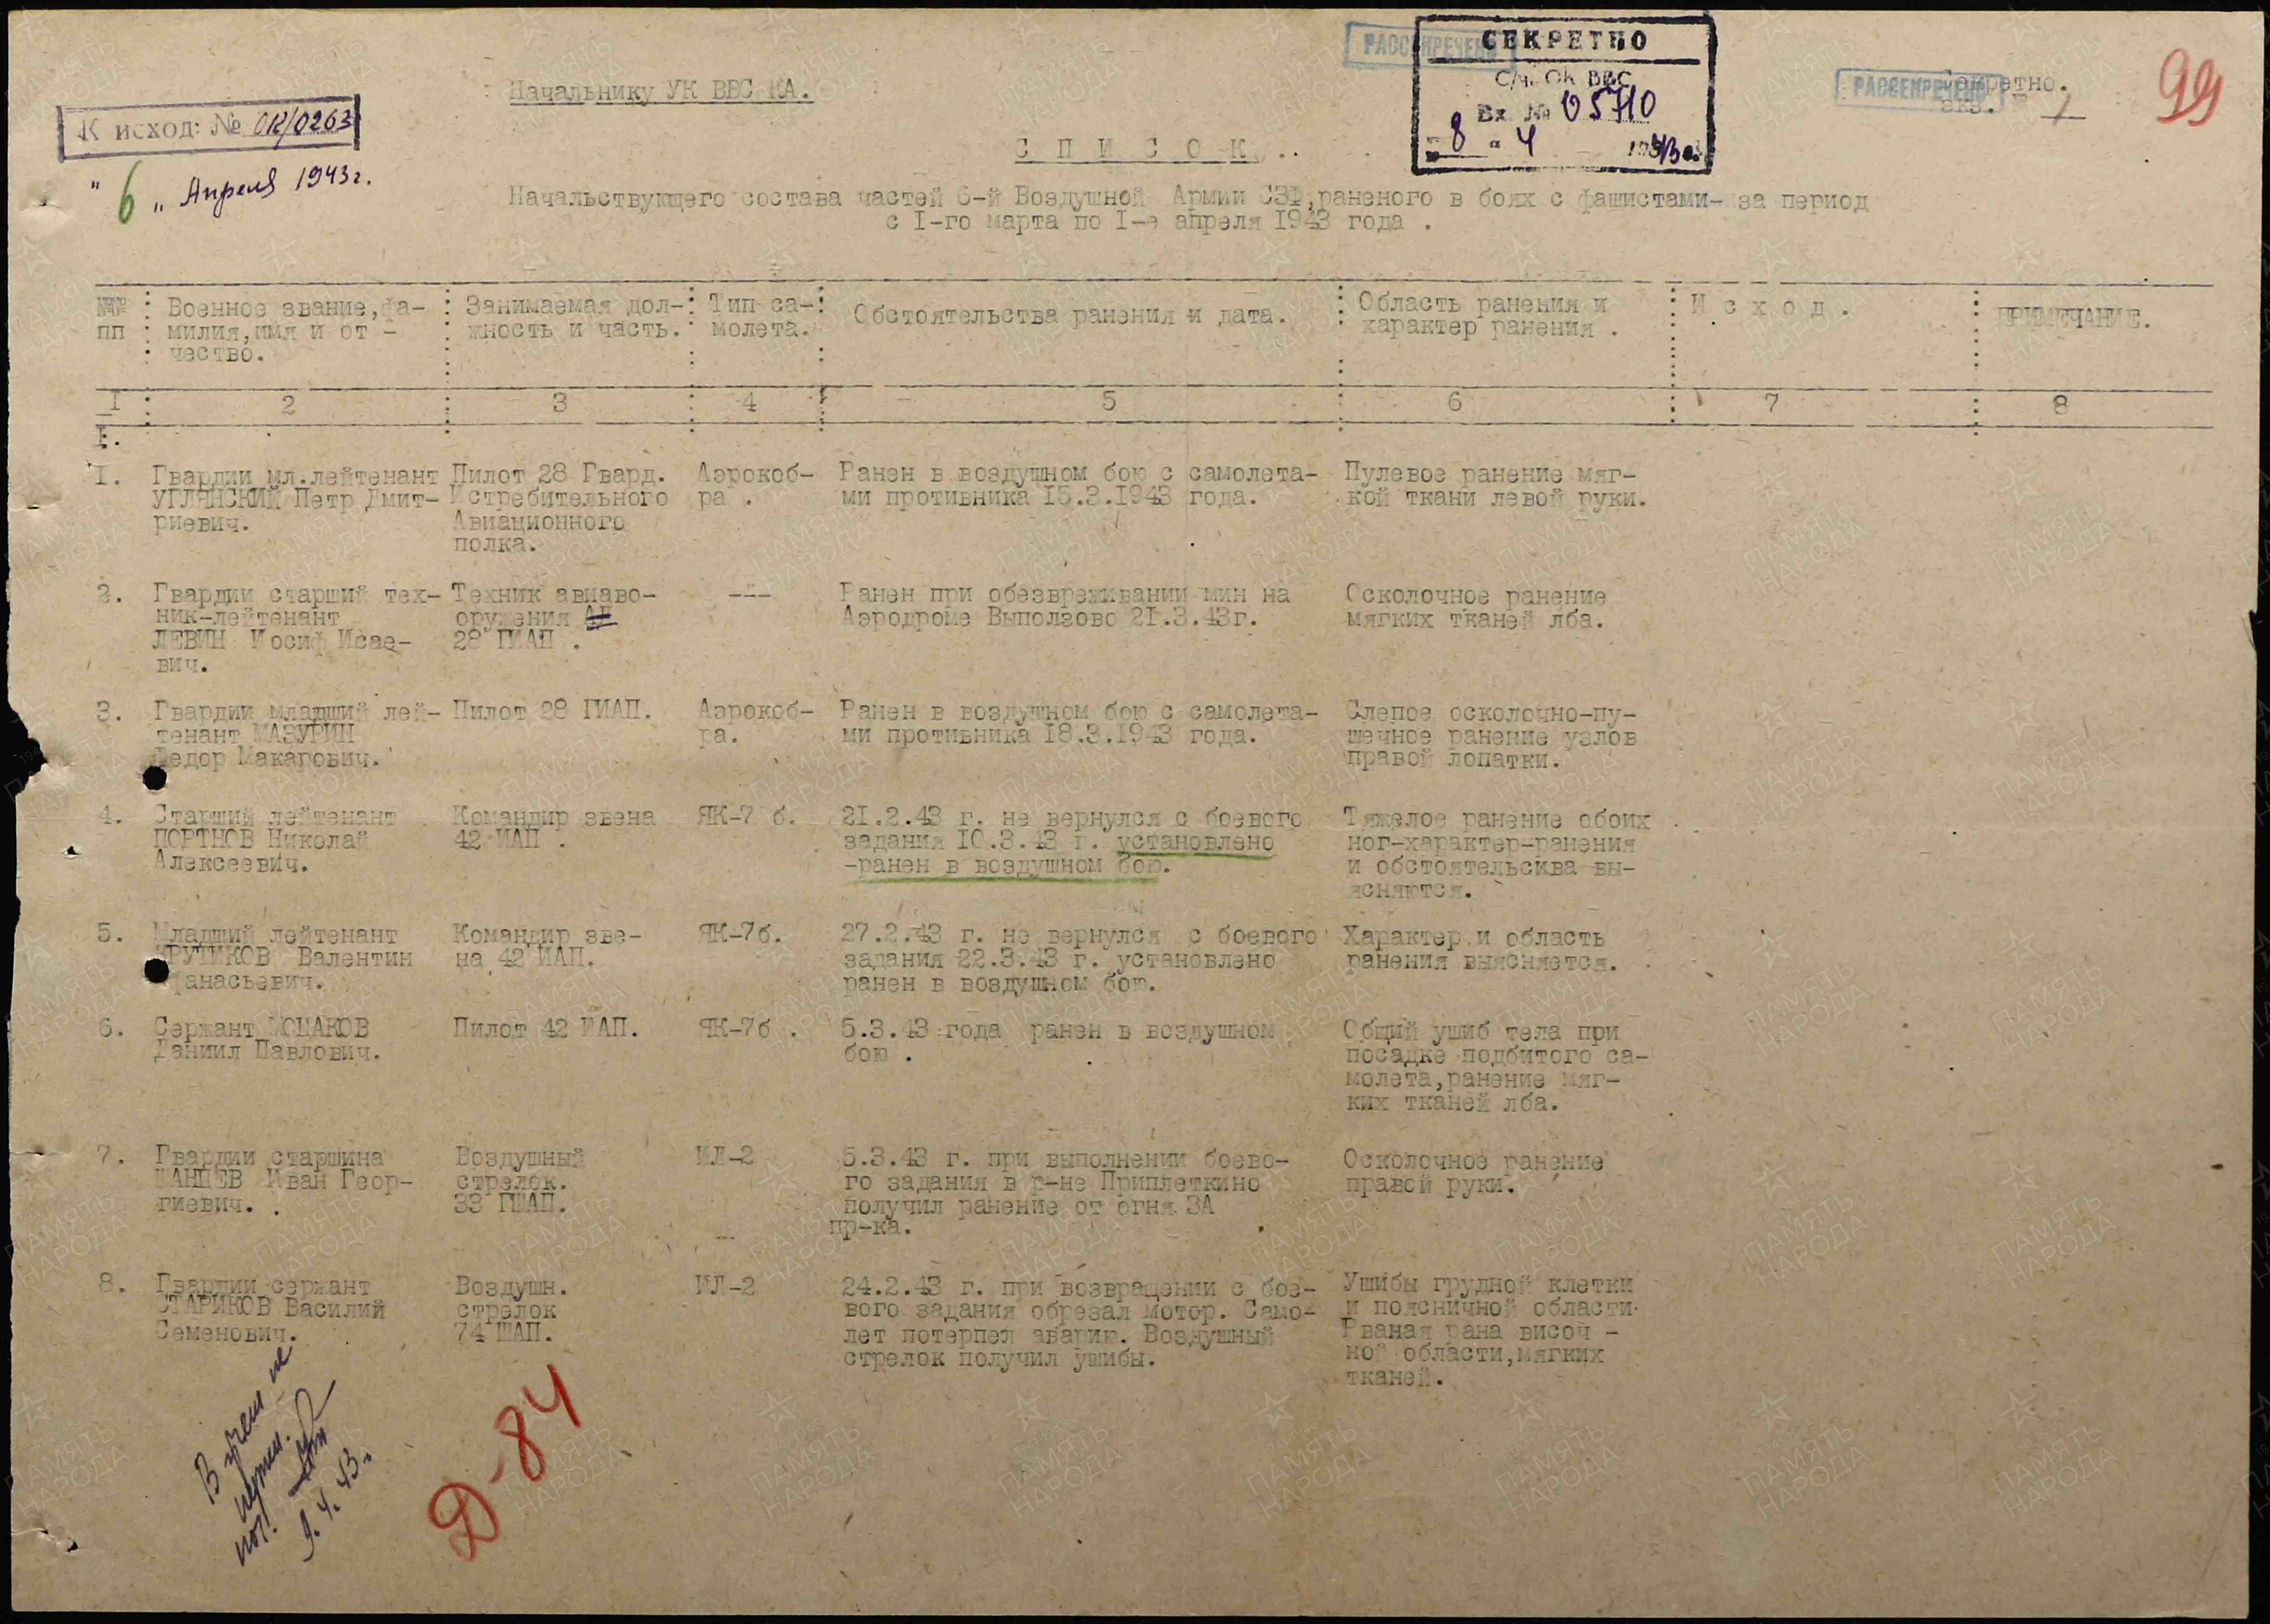 РАССЕКРЕЧЕНО
СЕКРЕТНО
С/ч ОК ВВС
Вх № 05710
"8" 4 1943 г.
РАССЕКРЕЧЕНО
Секретно.
экз. 1
99
Начальнику УК ВВС КА.
К исход: № ОК/0263
"6" Апреля 1943 г.
С П И С О К
Начальствующего состава частей 6-й Воздушной Армии СЗФ, раненого в боях с фашистами- за период
с I-го марта по I-е апреля 1943 года .
№№ пп : Военное звание, фамилия, имя и от - чество. : Занимаемая дол- жность и часть. : Тип са- молета. : Обстоятельства ранения и дата. : Область ранения и характер ранения . : И с х о д . : ПРИМЕЧАНИЕ.
I : 2 : 3 : 4 : 5 : 6 : 7 : 8
I.
I. Гвардии мл.лейтенант Пилот 28 Гвард. Аэрокоб- Ранен в воздушном бою с самолета- Пулевое ранение мяг-
УГЛЯНСКИЙ Петр Дмит- Истребительного ра . ми противника 15.3.1943 года. кой ткани левой руки.
риевич. Авиационного
полка.
2. Гвардии старший тех- Техник авиаво- --- Ранен при обезвреживании мин на Осколочное ранение
ник-лейтенант оружения Аэродроме Выползово 21.3.43г. мягких тканей лба.
ЛЕВИН Иосиф Исае- 28 ГИАП .
вич.
3. Гвардии младший лей- Пилот 28 ГИАП. Аэрокоб- Ранен в воздушном бою с самолета- Слепое осколочно-пу-
тенант МАЗУРИН ра. ми противника 18.3.1943 года. шечное ранение узлов
Федор Макарович. правой лопатки.
4. Старший лейтенант Командир звена ЯК-7 б. 21.2.43 г. не вернулся с боевого Тяжелое ранение обоих
ПОРТНОВ Николай 42 ИАП . задания 10.3.43 г. установлено ног-характер-ранения
Алексеевич. -ранен в воздушном бою. и обстоятельсква вы-
ясняются.
5. Младший лейтенант Командир зве- ЯК-7б. 27.2.43 г. не вернулся с боевого Характер и область
КРУТИКОВ Валентин на 42 ИАП. задания 22.3.43 г. установлено ранения выясняется.
Афанасьевич. ранен в воздушном бою.
6. Сержант Пилот 42 ИАП. ЯК-7б . 5.3.43 года ранен в воздушном Общий ушиб тела при
Даниил Павлович. бою . посадке подбитого са-
молета, ранение мяг-
ких тканей лба.
7. Гвардии старшина Воздушный ИЛ-2 5.3.43 г. при выполнении боево- Осколочное ранение
ШАНЦЕВ Иван Геор- стрелок. го задания в р-не Приплеткино правой руки.
гиевич. 33 ГШАП. получил ранение от огня ЗА
пр-ка.
8. Гвардии сержант Воздушн. ИЛ-2 24.2.43 г. при возвращении с бое- Ушибы грудной клетки
СТАРИКОВ Василий стрелок вого задания обрезал мотор. Само- и поясничной области
Семенович. 74 ШАП. лет потерпел аварию. Воздушный Рваная рана височ -
стрелок получил ушибы. ной области, мягких
тканей.
В учет не
9.4.43.
Д-84
ПАМЯТЬ НАРОДА